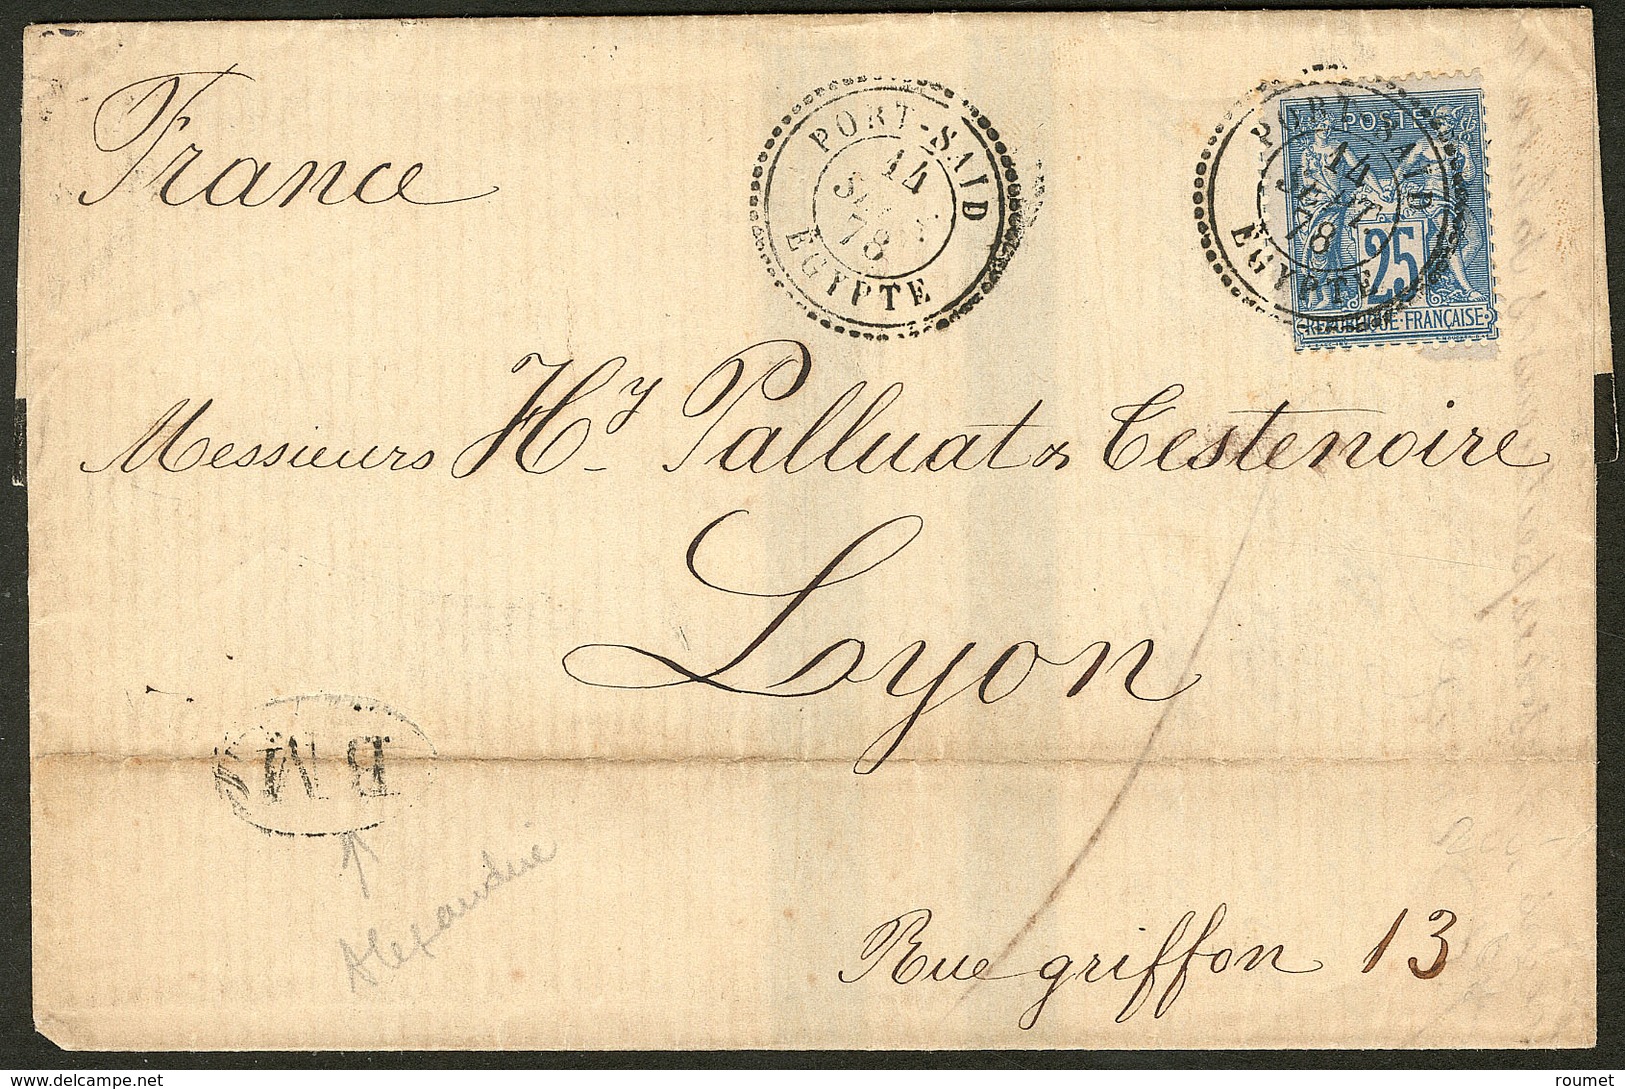 France
PORT-SAID
14
SEPT
78
EGYPTE
POSTE
25
REPUBLIQUE·FRANÇAISE
PORT-SAID
14
SEPT.
78
EGYPTE
Messieurs Hy Palluat & Testenoire
Lyon
BM
Alexandrie
Rue griffon 13
Roumet ON delcampe.net